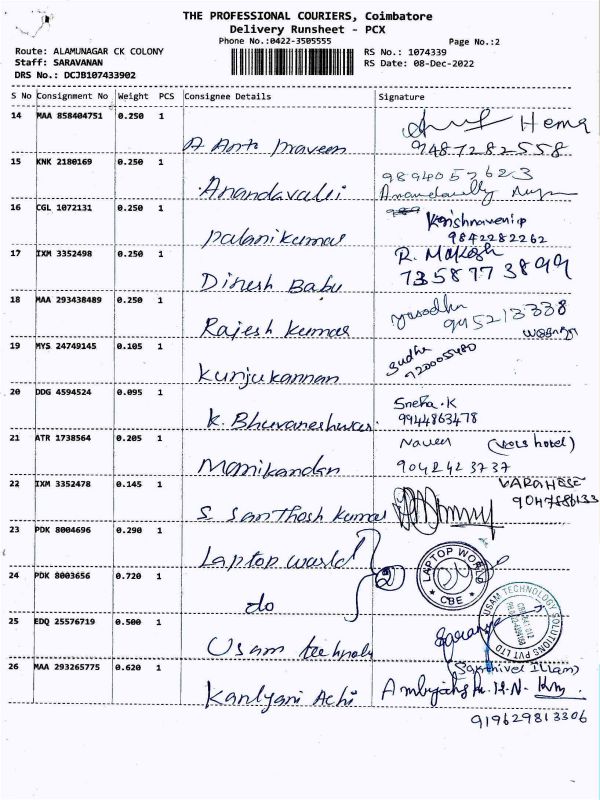 THE PROFESSIONAL COURIERS, Coimbatore
Delivery Runsheet - PCX
Phone No.:0422-3505555
Page No.:2
Route: ALAMUNAGAR CK COLONY
Staff: SARAVANAN
DRS No.: DCJB107433902
RS No.: 1074339
RS Date: 08-Dec-2022
S No Consignment No Weight PCS Consignee Details Signature
14 MAA 858404751 0.250 1
Hema
9487282558
15 KNK 2180169 0.250 1
Anandavalli
9894057623
16 CGL 1072131 0.250 1
Palanikumar
Krishnaveni
9842282262
17 IXM 3352498 0.250 1
Dinesh Babu
R. Mukesh
7358773899
18 MAA 293438489 0.250 1
Rajesh Kumar
yasodha
19 MYS 24749145 0.105 1
Kunjukannan
Sudha
20 DDG 4594524 0.095 1
K. Bhuvaneshwar
Sneha.K
9944863478
21 ATR 1738564 0.205 1
Manikandan
Naveen
9042423737
22 IXM 3352478 0.145 1
S Santhosh Kumar
23 PDK 8004696 0.290 1
Laptop world
LAPTOP WORLD
CBE
24 PDK 8003656 0.720 1
do
2
25 EDQ 25576719 0.500 1
Usam technoly
USAM TECHNOLOGY SOLUTIONS PVT LTD
26 MAA 293265775 0.620 1
Kanlyani Achi
(Sakthivel Illam)
919629813306